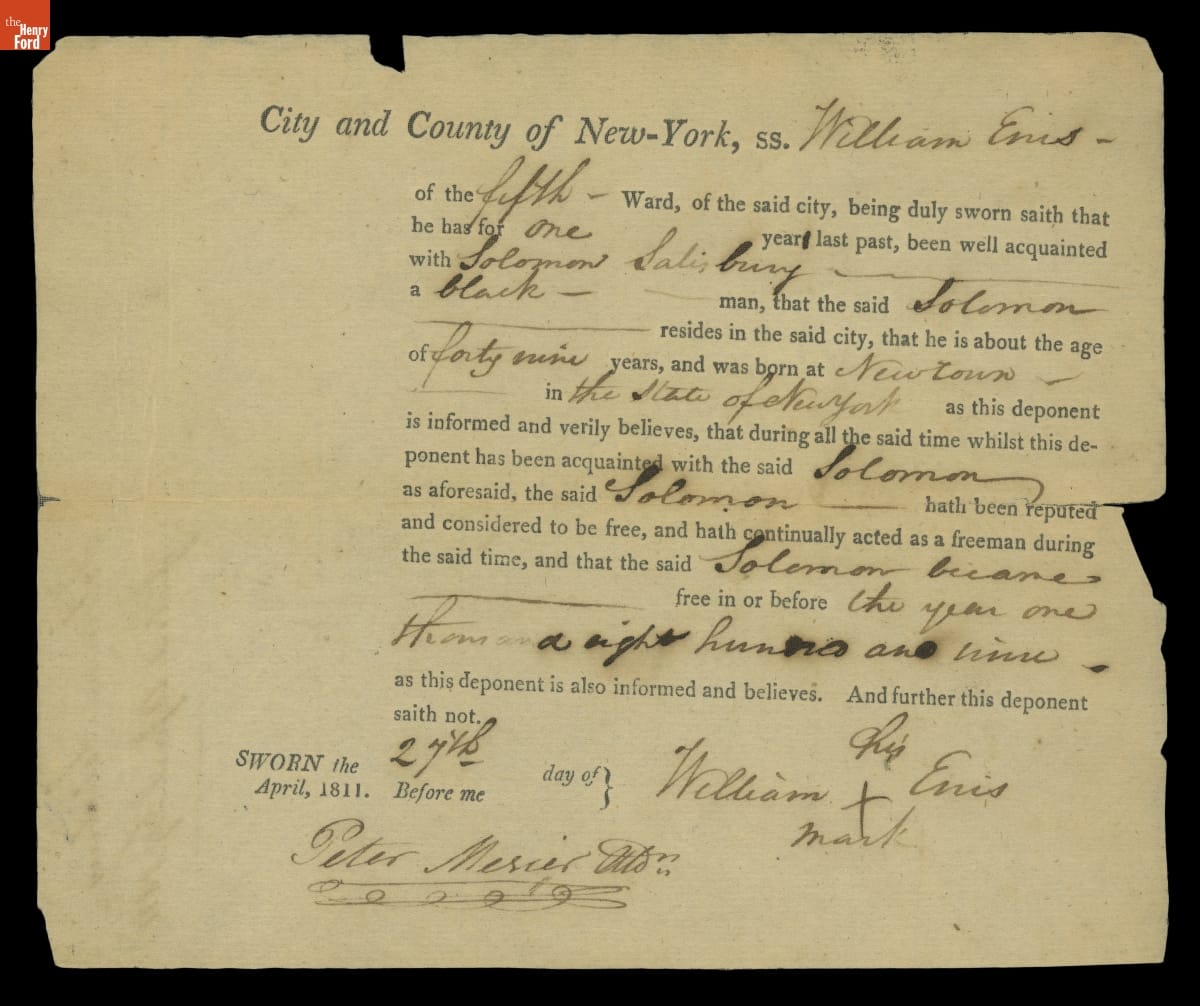 the
Henry
Ford
City and County of New-York, ss. William Enis -
of the fifth - Ward, of the said city, being duly sworn saith that
he has for one year last past, been well acquainted
with Solomon Salisbury
a black - man, that the said Solomon
resides in the said city, that he is about the age
of forty nine years, and was born at Newtown -
in the State of New York as this deponent
is informed and verily believes, that during all the said time whilst this de-
ponent has been acquainted with the said Solomon
as aforesaid, the said Solomon hath been reputed
and considered to be free, and hath continually acted as a freeman during
the said time, and that the said Solomon became
free in or before the year one
thousand eight hundred and nine -
as this deponent is also informed and believes. And further this deponent
saith not.
SWORN the 27th day of }
April, 1811. Before me
his
William X Enis
mark
Peter Mesier Aldn